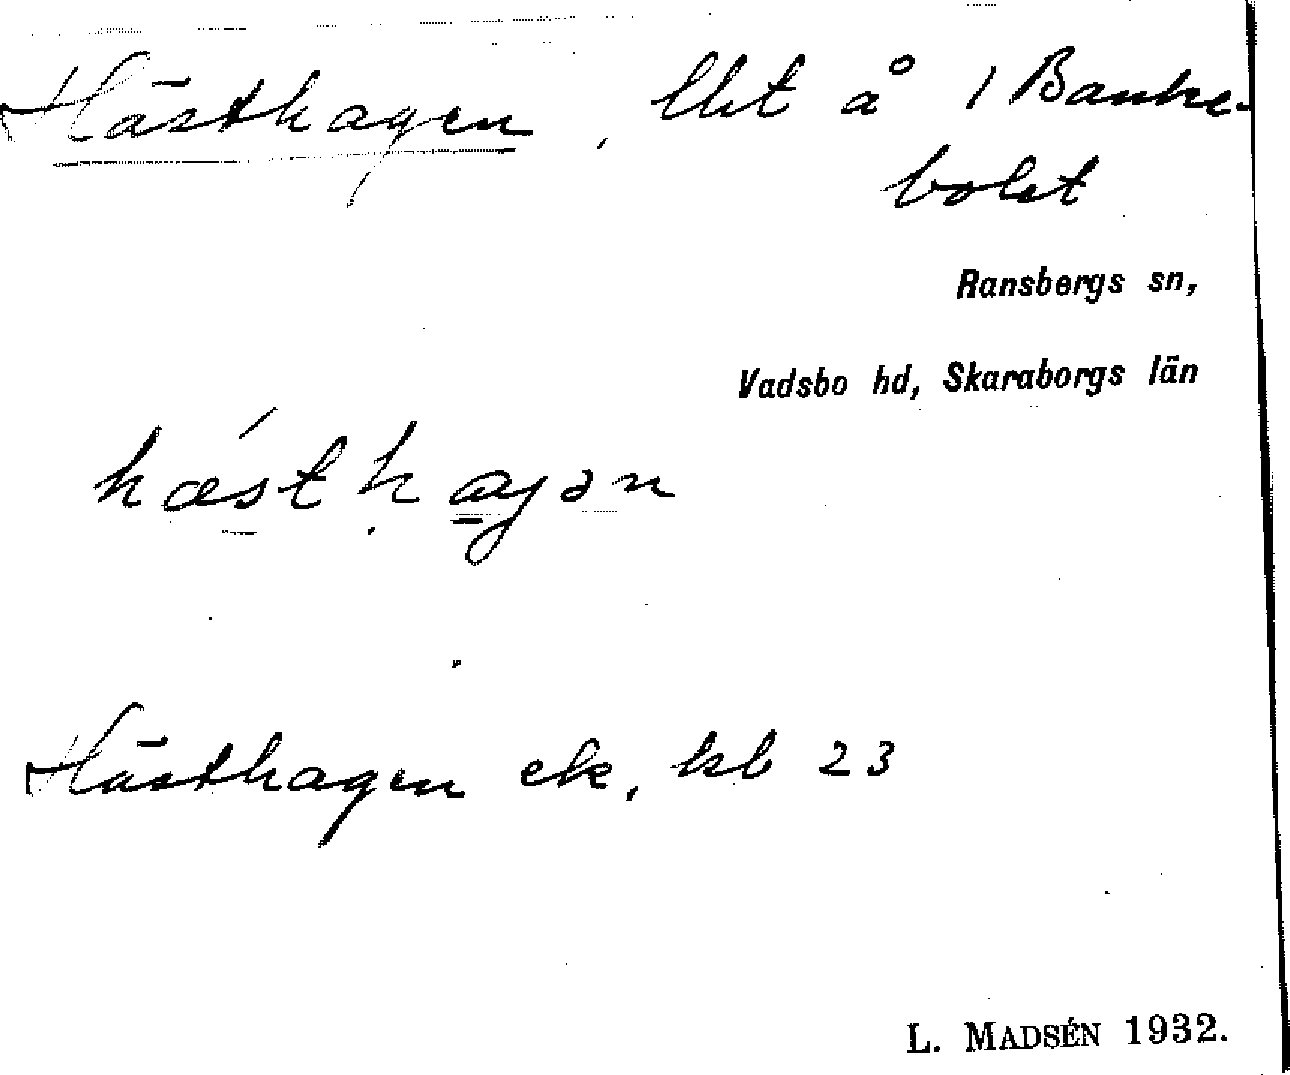 Hästhagen, lht å 1 Banke-
bolet
Ransbergs sn,
Vadsbo hd, Skaraborgs län
hæsthagən
Hästhagen ek, kb 23
L. MADSÉN 1932.